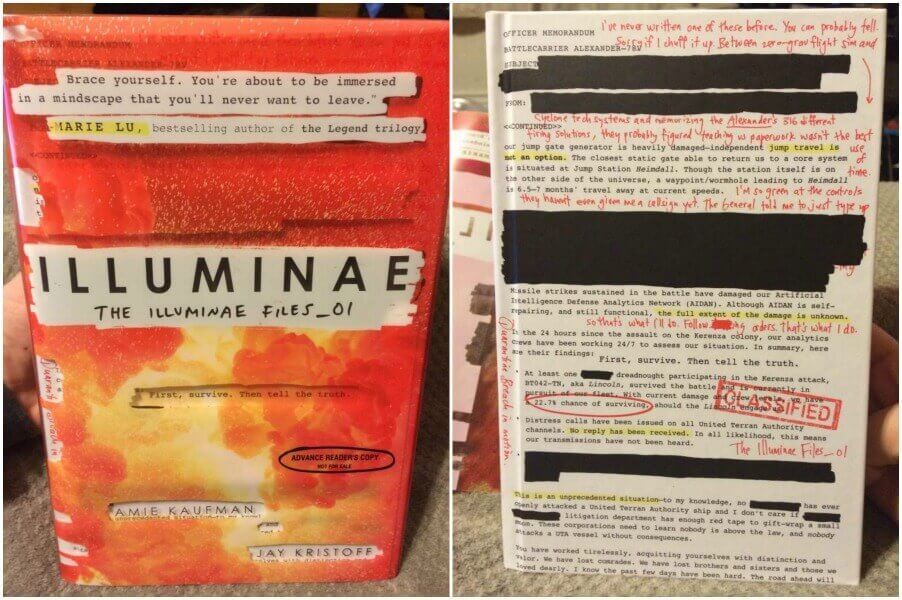 OFFICER MEMORANDUM
BATTLECARRIER ALEXANDER-78V
Brace yourself. You're about to be immersed
in a mindscape that you'll never want to leave."
MARIE LU, bestselling author of the Legend trilogy
<<CONTINUED>>
ILLUMINAE
THE ILLUMINAE FILES_01
First, survive. Then tell the truth.
ADVANCE READER'S COPY
NOT FOR SALE
AMIE KAUFMAN
unprecedented situation—to my knowl
JAY KRISTOFF
elves with distinct
I've never written one of these before. You can probably tell.
OFFICER MEMORANDUM
Sorry if I chuff it up. Between zero-grav flight sim and
BATTLECARRIER ALEXANDER-78V
SUBJECT
FROM:
Cyclone tech systems and memorizing the Alexander's 316 different
<<CONTINUED>>
firing solutions, they probably figured teaching us paperwork wasn't the best
use of time.
our jump gate generator is heavily damaged—independent jump travel is
not an option. The closest static gate able to return us to a core system
is situated at Jump Station Heimdall. Though the station itself is on
the other side of the universe, a waypoint/wormhole leading to Heimdall
is 6.5–7 months' travel away at current speeds.
I'm so green at the controls
they haven't even given me a callsign yet. The General told me to just type up
my
Missile strikes sustained in the battle have damaged our Artificial
Intelligence Defense Analytics Network (AIDAN). Although AIDAN is self-
repairing, and still functional, the full extent of the damage is unknown.
so that's what I'll do. Follow ing orders. That's what I do.
In the 24 hours since the assault on the Kerenza colony, our analytics
crews have been working 24/7 to assess our situation. In summary, here
are their findings:
First, survive. Then tell the truth.
• At least one dreadnought participating in the Kerenza attack,
BT042-TN, aka Lincoln, survived the battle and is currently in
pursuit of our fleet. With current damage and crew levels, we have
22.7% chance of surviving, should the Lincoln engage us.
CLASSIFIED
• Distress calls have been issued on all United Terran Authority
channels. No reply has been received. In all likelihood, this means
our transmissions have not been heard.
The Illuminae Files_01
Quarantine Breach in motion.
This is an unprecedented situation—to my knowledge, no has ever
openly attacked a United Terran Authority ship and I don't care if
litigation department has enough red tape to gift-wrap a small
moon. These corporations need to learn nobody is above the law, and nobody
attacks a UTA vessel without consequences.
You have worked tirelessly, acquitting yourselves with distinction and
valor. We have lost comrades. We have lost brothers and sisters and those we
loved dearly. I know the past few days have been hard. The road ahead will